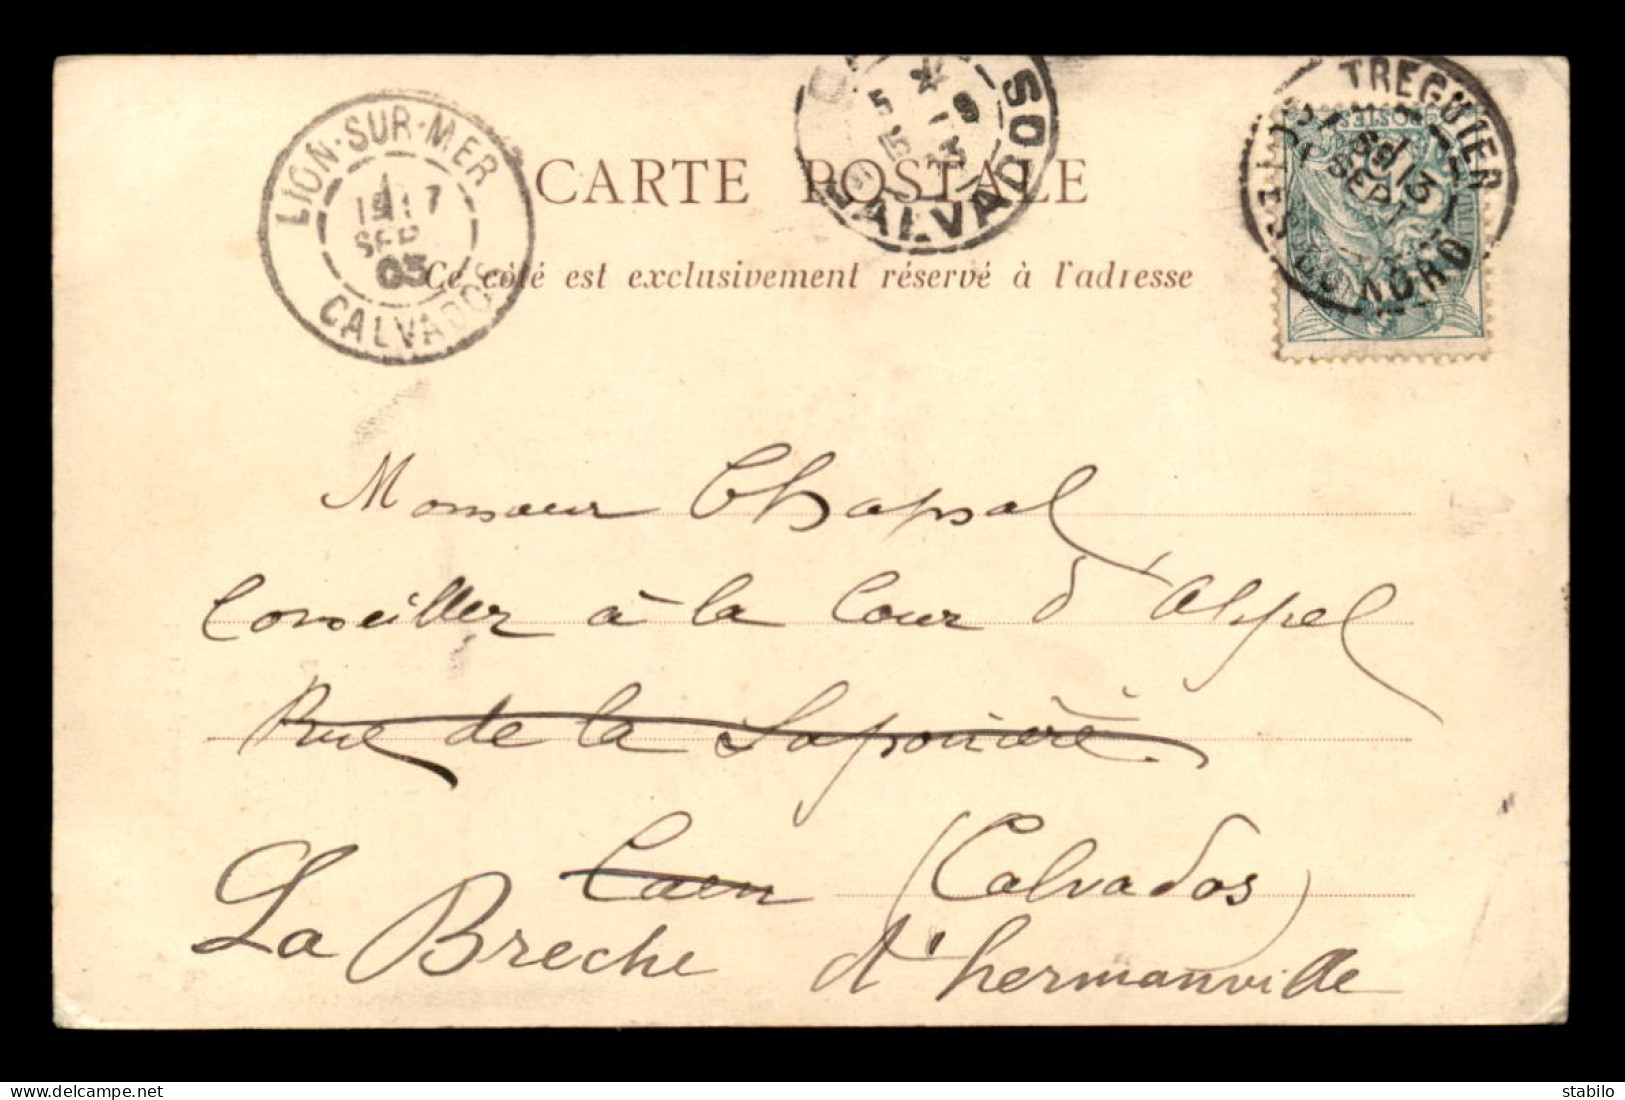 LION-SUR-MER
17
SEPT
05
CALVADOS
CALVADOS
TREGUIER
13
SEPT
COTES DU NORD
POSTES
CARTE POSTALE
Ce côté est exclusivement réservé à l'adresse
Monsieur Chapsal
Conseiller à la Cour d'Appel
Rue de la
Caen (Calvados)
La Breche d'hermanville
delcampe.net
stabilo